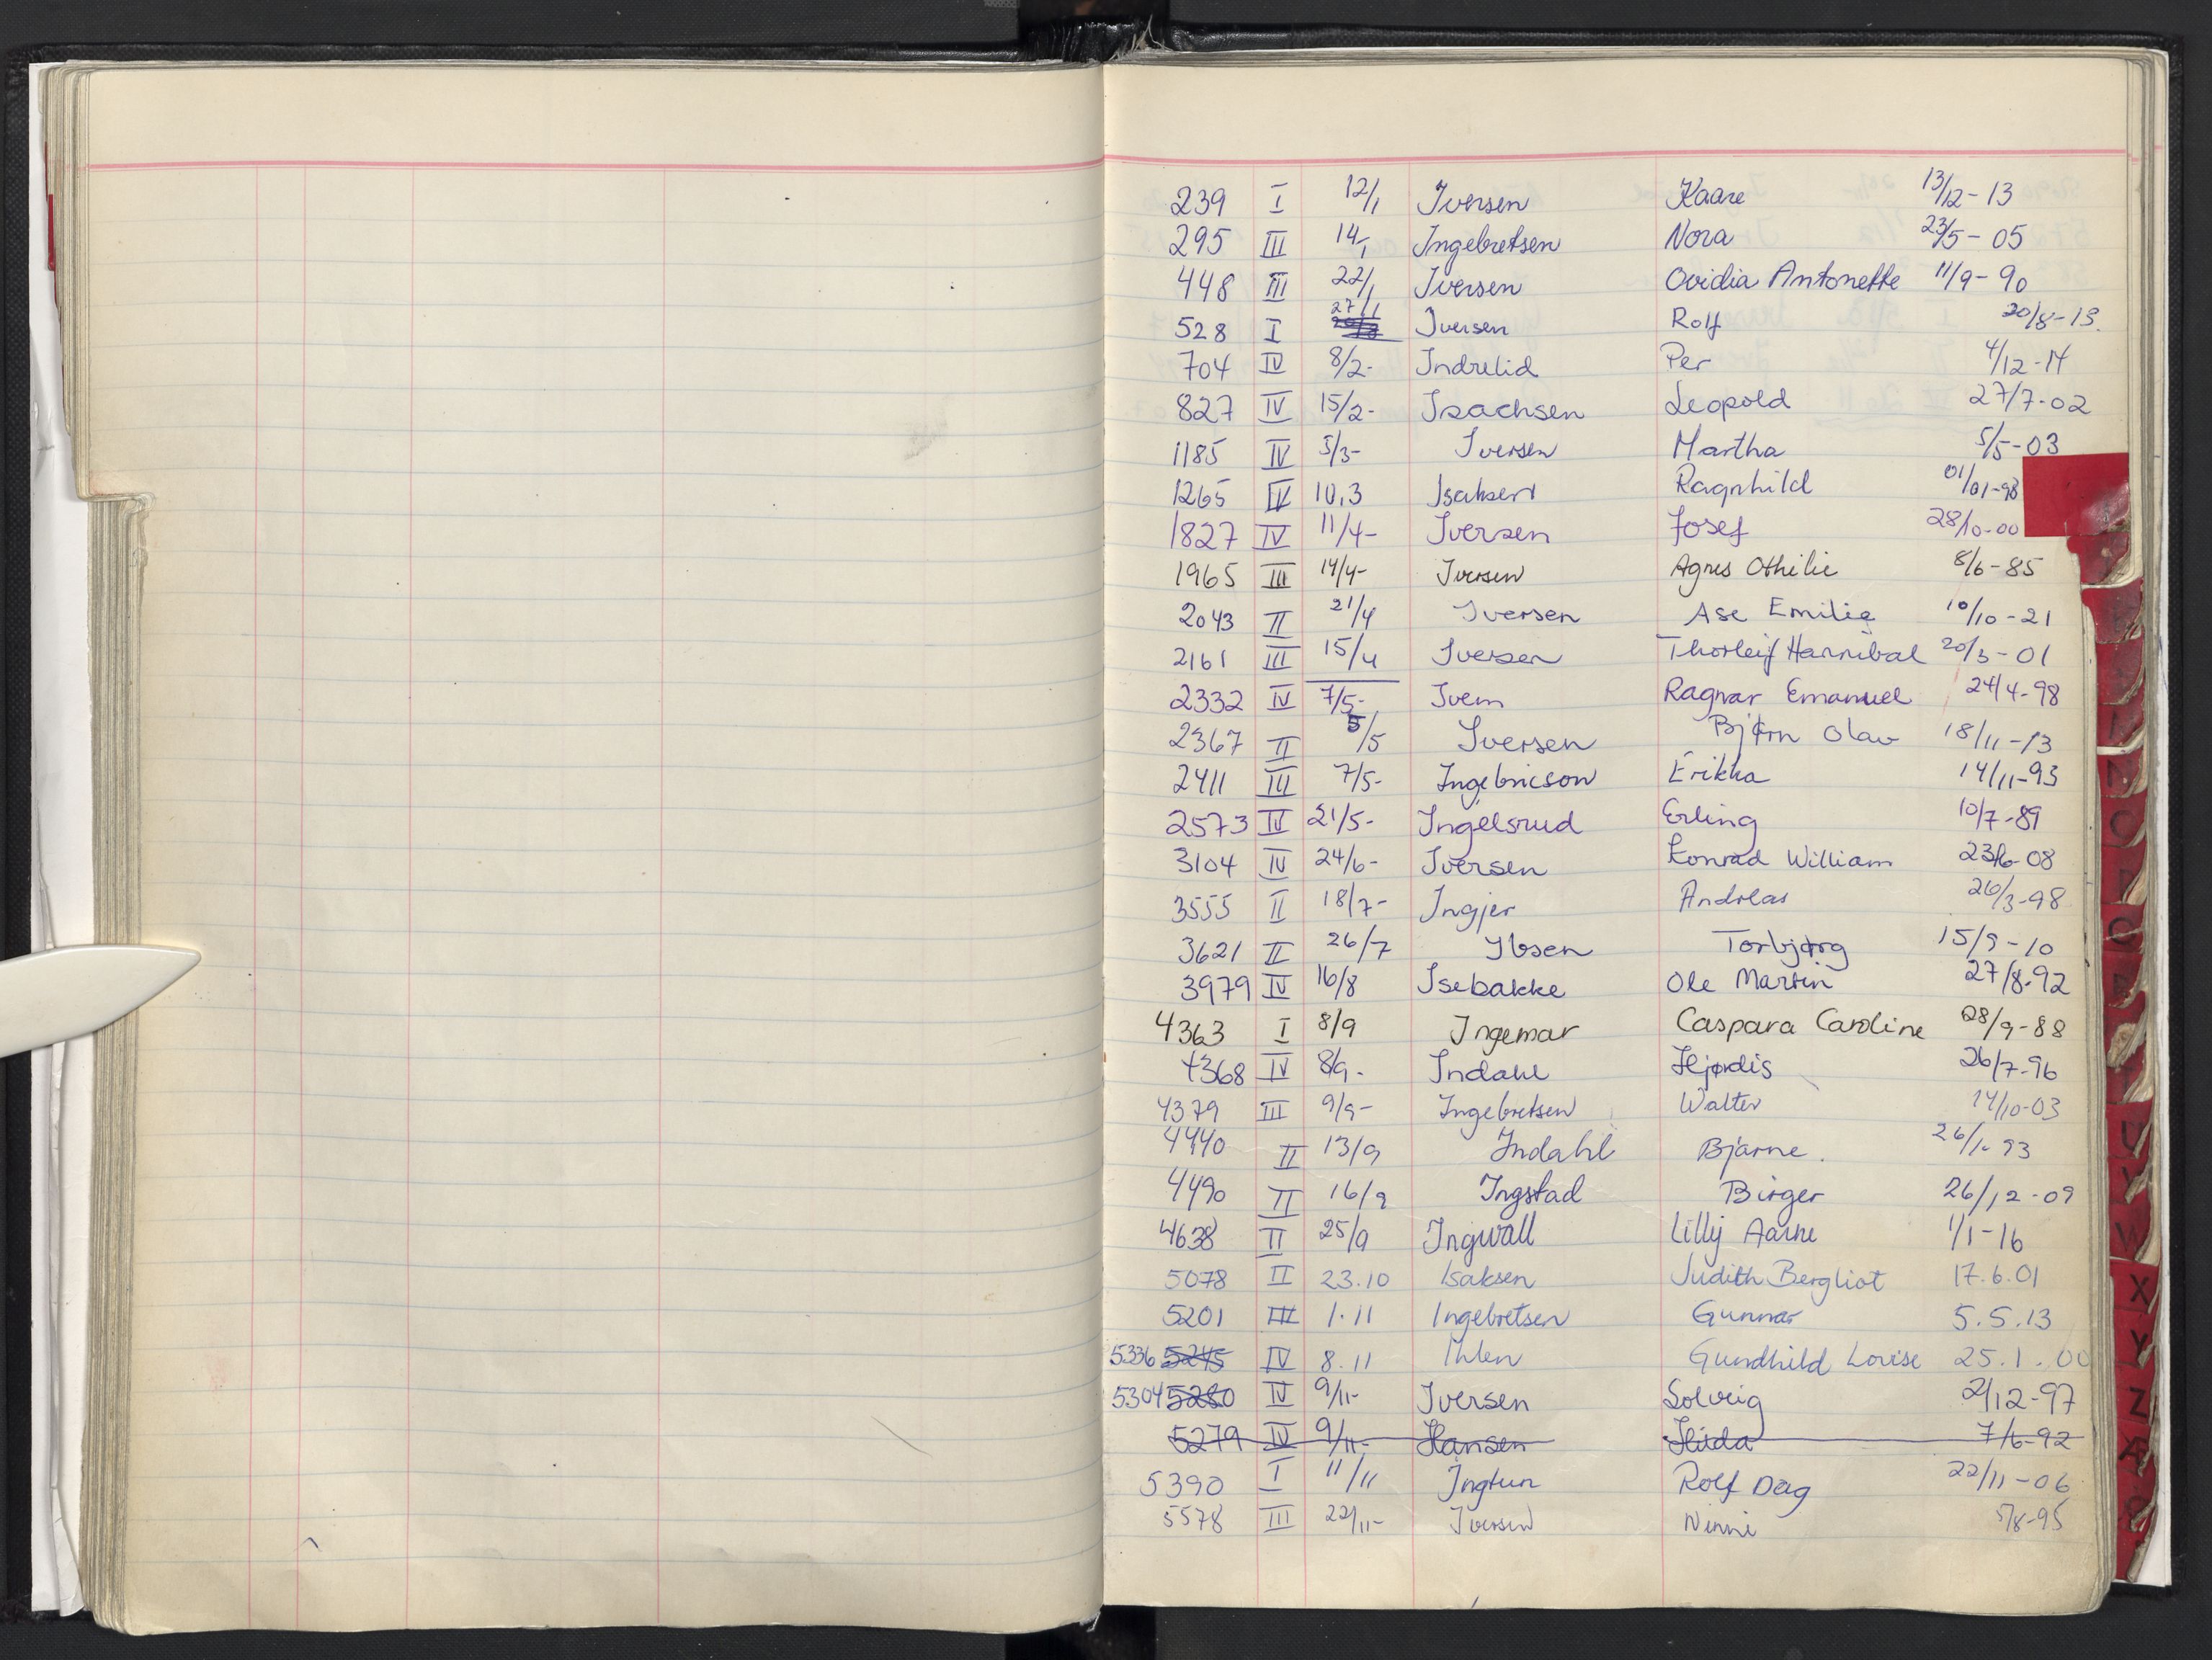 239 I 12/1 Iversen Kaare 13/12-13
295 III 14/1 Ingebretsen Nora 23/5-05
448 III 22/1 Iversen Ovidia Antonette 11/9-90
528 I 27/1 Iversen Rolf 20/8-13.
704 IV 8/2- Indrelid Per 4/12-14
827 IV 15/2- Isachsen Leopold 27/7-02
1185 IV 5/3- Iversen Martha 5/5-03
1265 IV 10.3 Isaksen Ragnhild 01/01-98
1827 IV 11/4- Iversen Josef 28/10-00
1965 III 14/4- Iversen Agnes Othilie 8/6-85
2043 II 21/4 Iversen Ase Emilie 10/10-21
2161 III 15/4 Iversen Thorleif Hannibal 20/3-01
2332 IV 7/5- Ivem Ragnar Emanuel 24/4-98
2367 II 5/5 Iversen Bjørn Olav 18/11-13
2411 III 7/5- Ingebricson Erikka 14/11-93
2573 IV 21/5- Ingelsrud Erling 10/7-89
3104 IV 24/6- Iversen Konrad William 23/6-08
3555 II 18/7- Ingjer Andreas 26/3-98
3621 II 26/7 Ibsen Torbjørg 15/9-10
3979 IV 16/8 Isebakke Ole Martin 27/8-92
4363 I 8/9 Ingemar Caspara Caroline 28/9-88
4368 IV 8/9- Indahl Hjørdis 26/7-96
4379 III 9/9- Ingebretsen Walter 14/10-03
4440 II 13/9 Indahl Bjarne. 26/1-93
4490 II 16/9 Ingstad Birger 26/12-09
4638 II 25/9 Ingwall Lilly Aarne 1/1-16
5078 II 23.10 Isaksen Judith Bergliot 17.6.01
5201 III 1.11 Ingebretsen Gunnar 5.5.13
5336 5245 IV 8.11 Ihlen Gundhild Lovise 25.1.00
5304 5280 IV 9/11- Iversen Solveig 2/12-97
5279 IV 9/11- Hansen Hilda 7/6-92
5390 I 11/11 Ingtun Rolf Dag 22/11-06
5578 III 22/11- Iversen Ninni 5/8-95
U
W
X
Y
Z
Æ